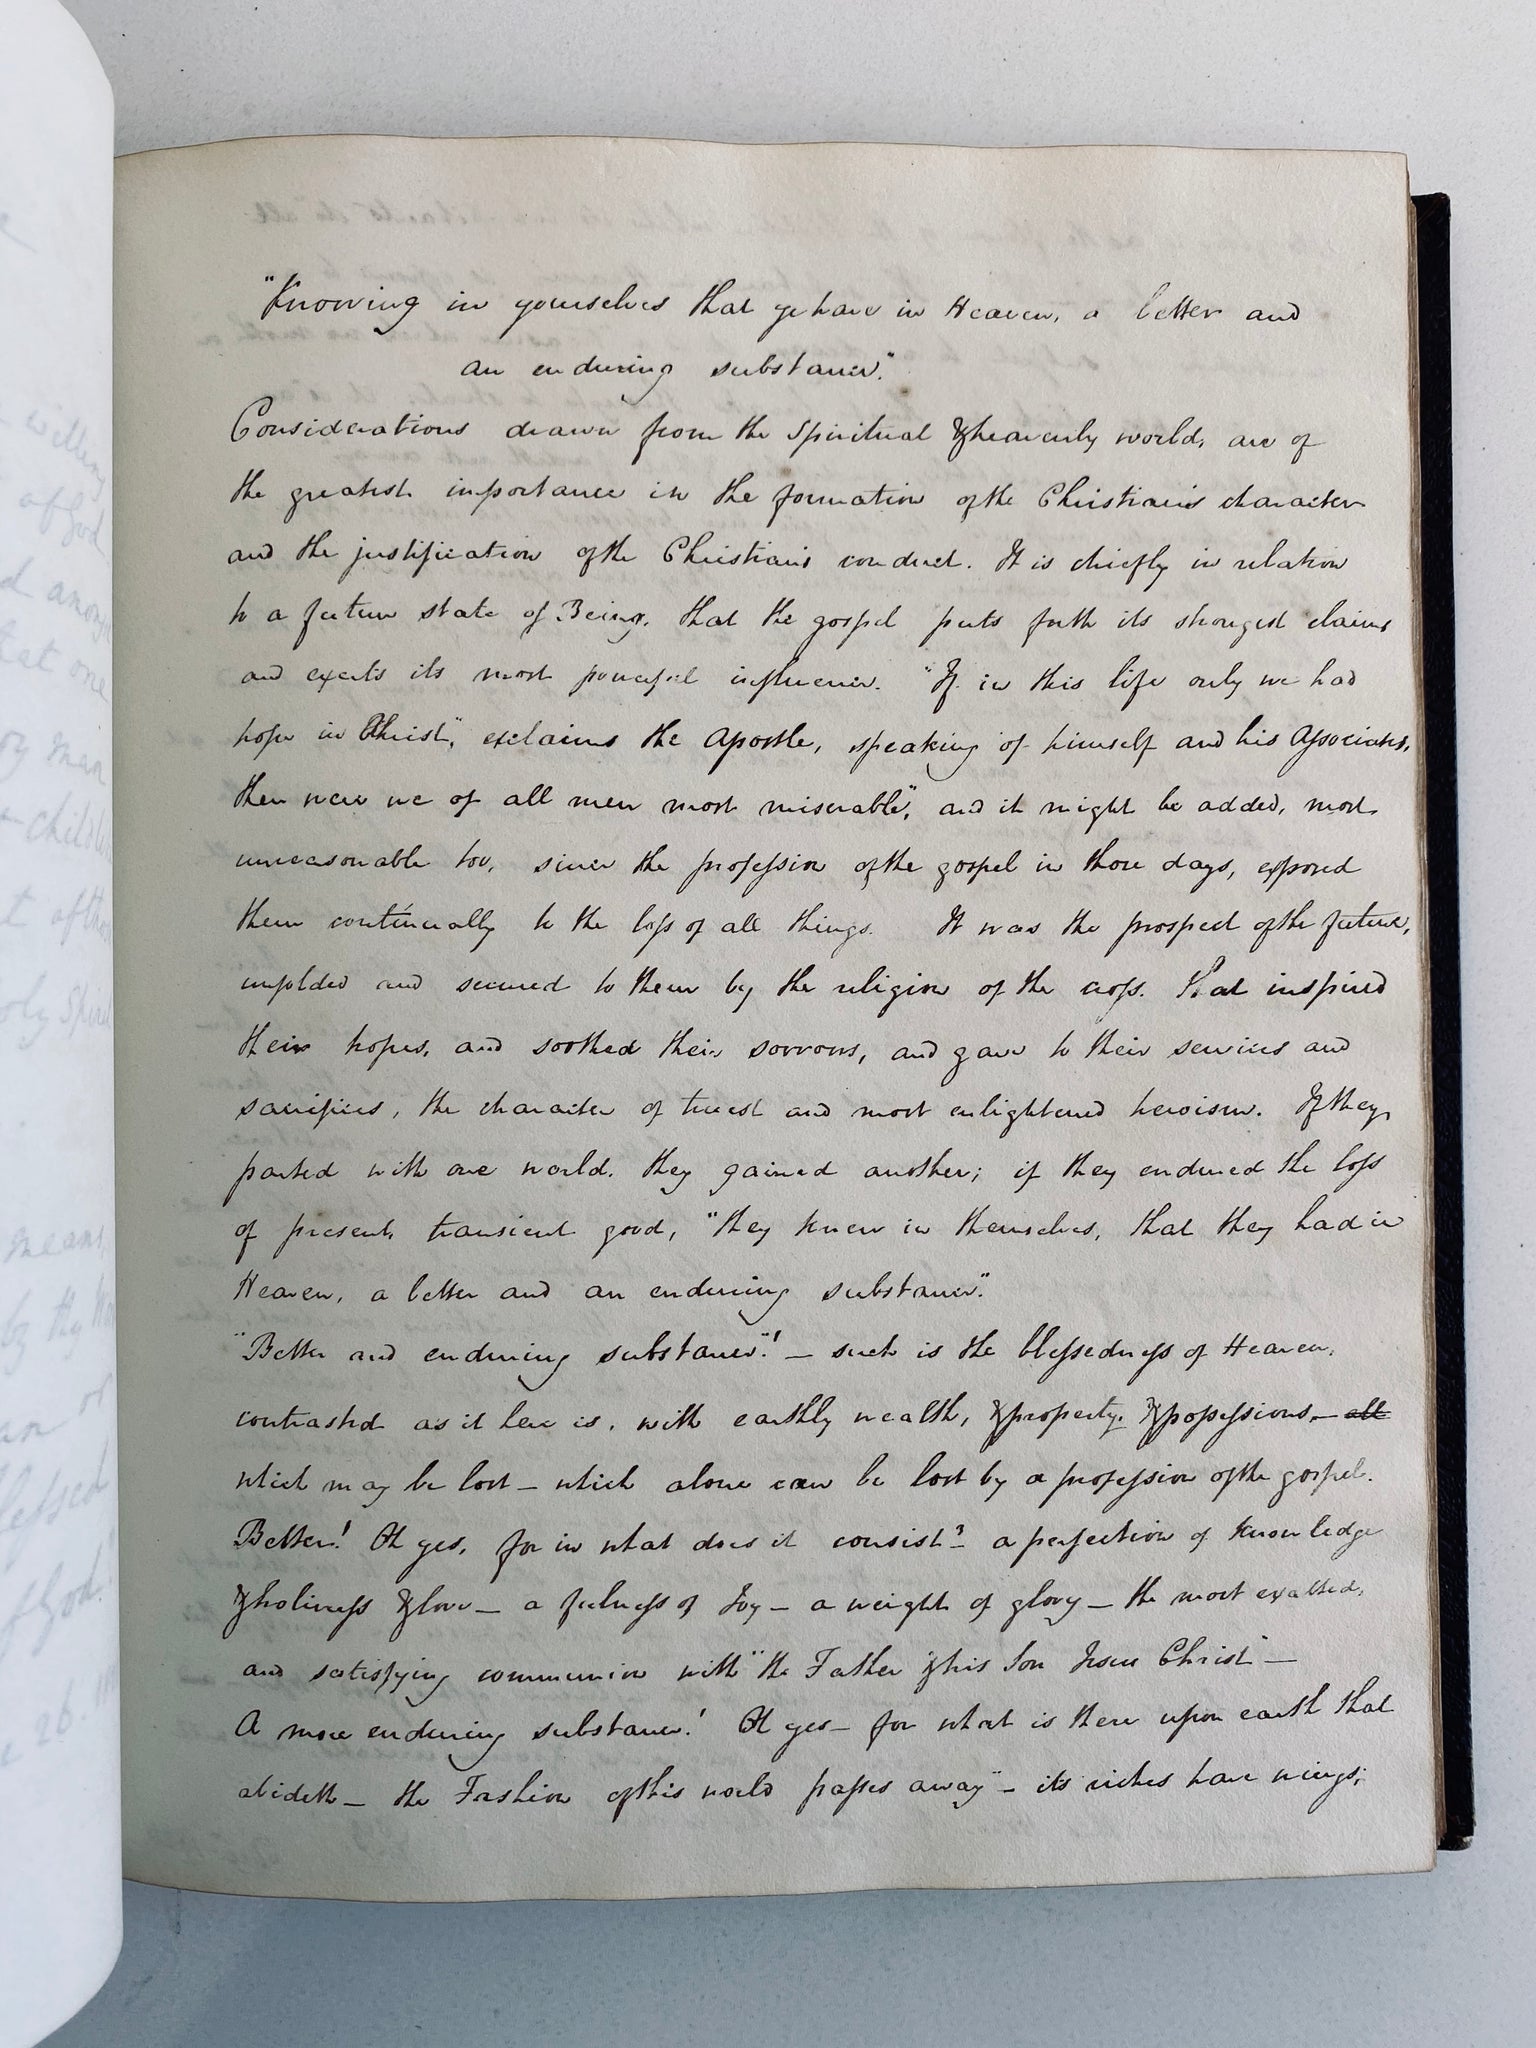 "Knowing in yourselves that ye have in Heaven, a better and
an enduring substance."
Considerations drawn from the spiritual & heavenly world, are of
the greatest importance in the formation of the Christian's character
and the justification of the Christian's conduct. It is chiefly in relation
to a future state of Being, that the gospel puts forth its strongest claims
and exerts its most powerful influence. "If in this life only we had
hope in Christ", exclaims the Apostle, speaking of himself and his Associates,
then were we of all men most miserable", and it might be added, most
unreasonable too, since the profession of the gospel in those days, exposed
them continually to the loss of all things. It was the prospect of the future,
unfolded and secured to them by the religion of the cross. that inspired
their hopes, and soothed their sorrows, and gave to their services and
sacrifices, the character of truest and most enlightened heroism. If they
parted with one world, they gained another; if they endured the loss
of present, transient good, "they knew in themselves, that they had in
Heaven, a better and an enduring substance".
"Better and enduring substance"! – such is the blessedness of Heaven,
contrasted as it here is, with earthly wealth, & property. & possessions, – all
which may be lost – which alone can be lost by a profession of the gospel.
Better! Oh yes, for in what does it consist? – a perfection of knowledge
& holiness & love – a fulness of Joy – a weight of glory – the most exalted,
and satisfying communion with "the Father & his Son Jesus Christ" –
A more enduring substance! Oh yes – for what is there upon earth that
abideth – the Fashion of this world passes away" – its riches have wings;
willing
of God
one
man
Spirit
meant